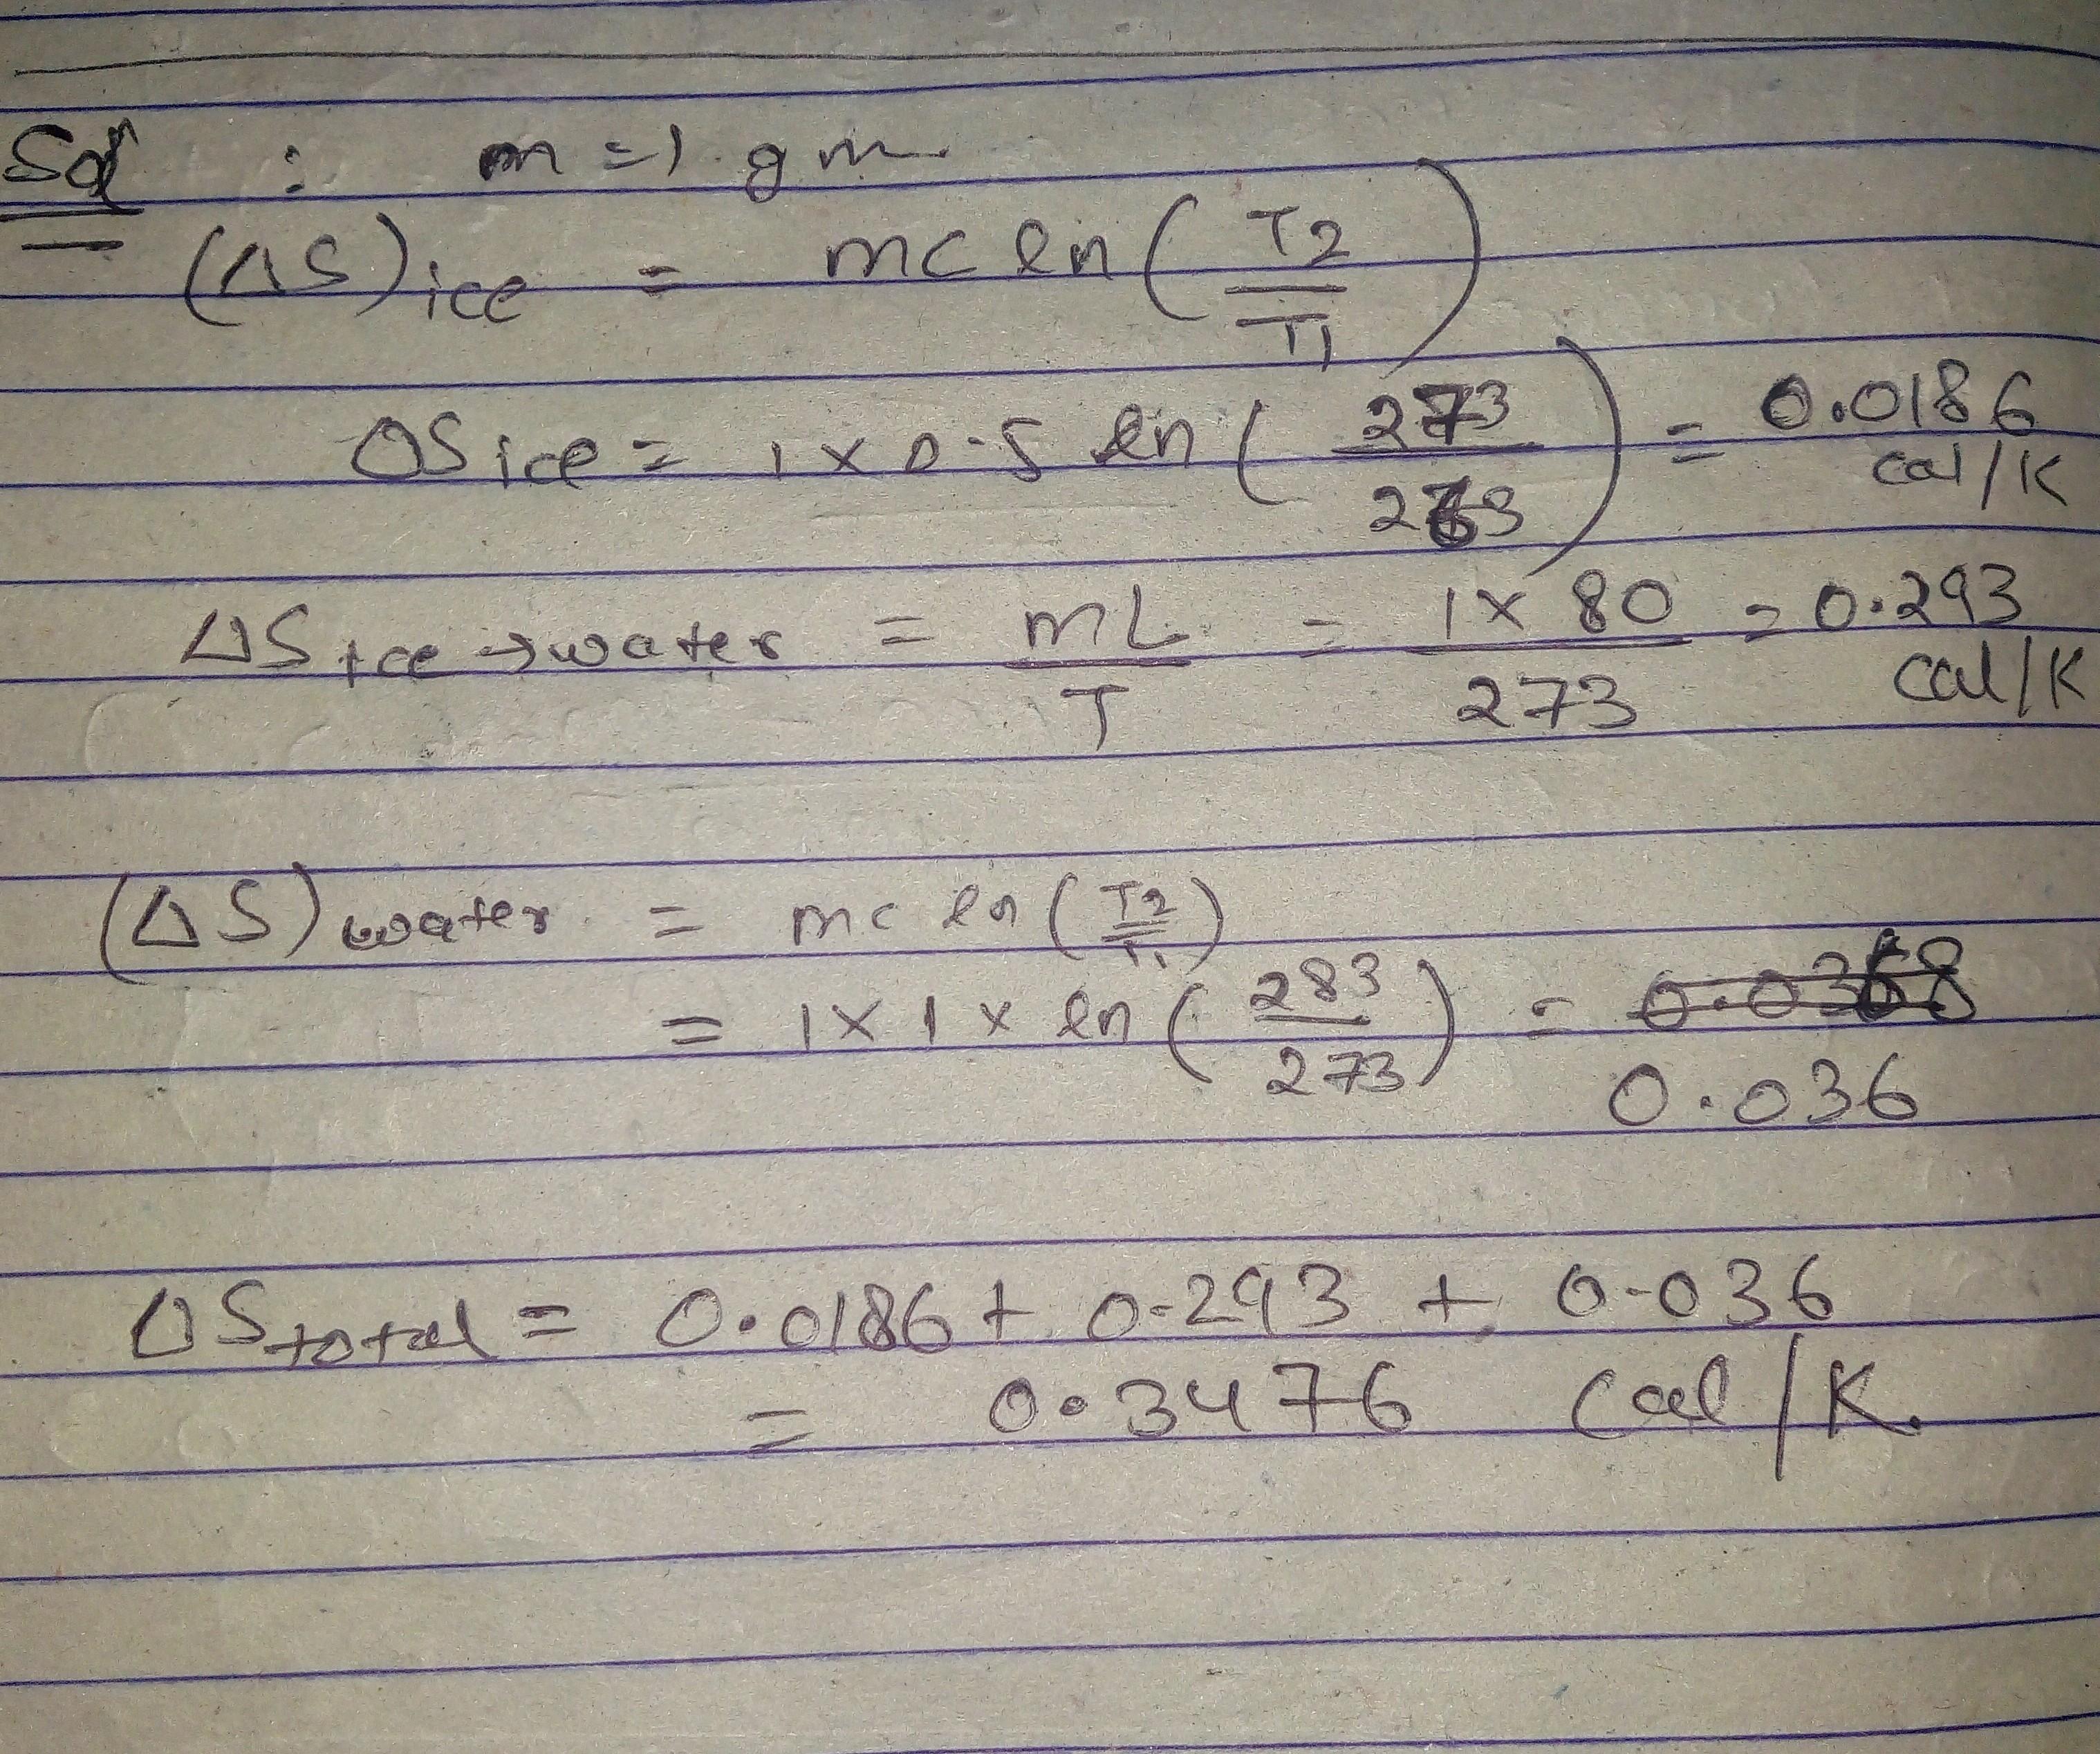 Sol : m = 1 gm
(ΔS)ice = mc ln (T2/T1)
ΔS ice = 1 x 0.5 ln (273/263) = 0.0186 cal/K
ΔS ice → water = mL/T = 1 x 80/273 = 0.293 cal/K
(ΔS) water = mc ln (T2/T1)
= 1 x 1 x ln (283/273) =
0.036
ΔS total = 0.0186 + 0.293 + 0.036
= 0.3476 cal/K.